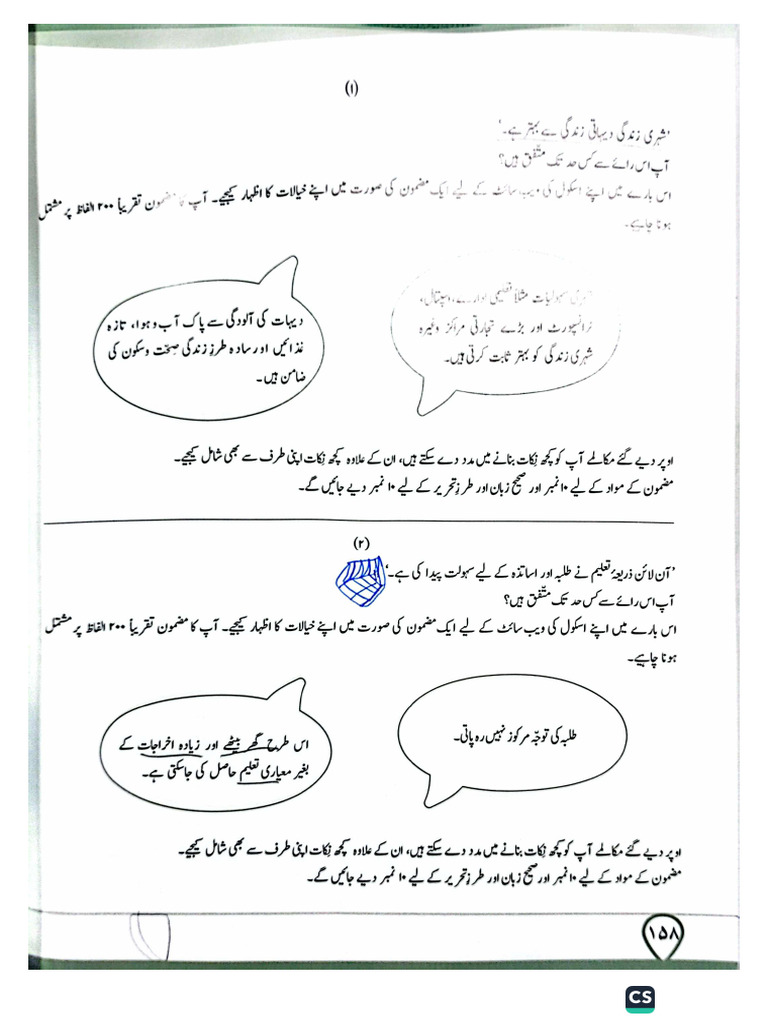 (۱)
'شہری زندگی دیہاتی زندگی سے بہتر ہے۔'
آپ اس رائے سے کس حد تک متّفق ہیں؟
اس بارے میں اپنے اسکول کی ویب سائٹ کے لیے ایک مضمون کی صورت میں اپنے خیالات کا اظہار کیجیے۔ آپ کا مضمون تقریباً ۲۰۰ الفاظ پر مشتمل
ہونا چاہیے۔
شہری سہولیات مثلاً تعلیمی ادارے، اسپتال،
ٹرانسپورٹ اور بڑے تجارتی مراکز وغیرہ
شہری زندگی کو بہتر ثابت کرتی ہیں۔
دیہات کی آلودگی سے پاک آب و ہوا، تازہ
غذائیں اور سادہ طرزِ زندگی صِحّت و سکون کی
ضامن ہیں۔
اوپر دیے گئے مکالمے آپ کو کچھ نِکات بنانے میں مدد دے سکتے ہیں، ان کے علاوہ کچھ نِکات اپنی طرف سے بھی شامل کیجیے۔
مضمون کے مواد کے لیے ۱۰ نمبر اور صحیح زبان اور طرزِ تحریر کے لیے ۱۰ نمبر دیے جائیں گے۔
(۲)
'آن لائن ذریعۂ تعلیم نے طلبہ اور اساتذہ کے لیے سہولت پیدا کی ہے۔'
آپ اس رائے سے کس حد تک متّفق ہیں؟
اس بارے میں اپنے اسکول کی ویب سائٹ کے لیے ایک مضمون کی صورت میں اپنے خیالات کا اظہار کیجیے۔ آپ کا مضمون تقریباً ۲۰۰ الفاظ پر مشتمل
ہونا چاہیے۔
طلبہ کی توجّہ مرکوز نہیں رہ پاتی۔
اس طرح گھر بیٹھے اور زیادہ اخراجات کے
بغیر معیاری تعلیم حاصل کی جاسکتی ہے۔
اوپر دیے گئے مکالمے آپ کو کچھ نِکات بنانے میں مدد دے سکتے ہیں، ان کے علاوہ کچھ نِکات اپنی طرف سے بھی شامل کیجیے۔
مضمون کے مواد کے لیے ۱۰ نمبر اور صحیح زبان اور طرزِ تحریر کے لیے ۱۰ نمبر دیے جائیں گے۔
۱۵۸
CS